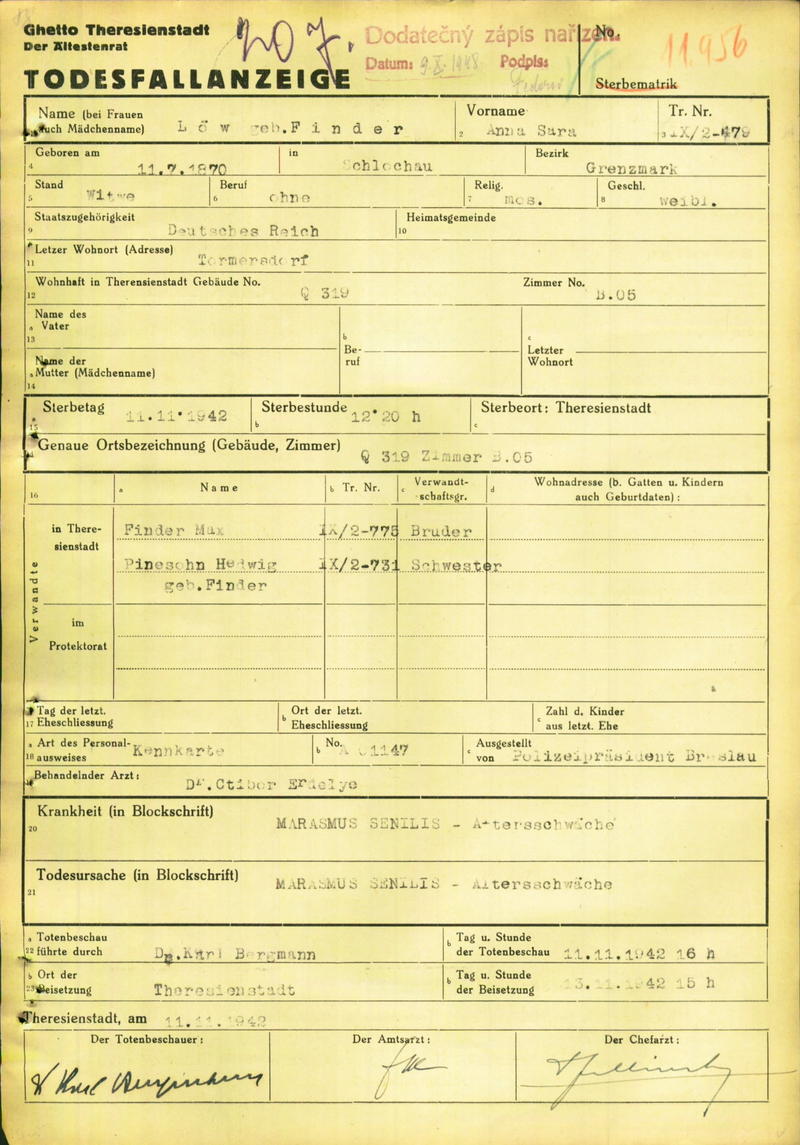 Ghetto Theresienstadt
Der Ältestenrat
TODESFALLANZEIGE
Dodatečný zápis nařízen.
Datum: Podpis:
No. 11956
Sterbematrik
Name (bei Frauen auch Mädchenname) Löw geb. Finder
Vorname 2 Anna Sara
Tr. Nr. 3 IX/2-479
Geboren am 4 11.7.1870
in Schlochau
Bezirk Grenzmark
Stand 5 Witwe
Beruf 6 ohne
Relig. 7 mos.
Geschl. 8 weibl.
Staatszugehörigkeit 9 Deutsches Reich
Heimatsgemeinde 10
Letzer Wohnort (Adresse) 11 Tormersdorf
Wohnhaft in Therensienstadt Gebäude No. 12 Q 319
Zimmer No. B.05
Name des a Vater 13
Name der a Mutter (Mädchenname) 14
b Be-ruf
c Letzter Wohnort
Sterbetag a 15 11.11.1942
Sterbestunde b 12.20 h
Sterbeort: Theresienstadt c
Genaue Ortsbezeichnung (Gebäude, Zimmer) Q 319 Zimmer B.05
16 a Name
b Tr. Nr.
c Verwandt-schaftsgr.
d Wohnadresse (b. Gatten u. Kindern auch Geburtdaten):
Verwandte
in There-sienstadt
Finder Max IX/2-775 Bruder
Pinesohn Hedwig IX/2-731 Schwester
geb. Finder
im Protektorat
a Tag der letzt. 17 Eheschliessung
b Ort der letzt. Eheschliessung
c Zahl d. Kinder aus letzt. Ehe
a Art des Personal- 18 ausweises Kennkarte
b No. 1147
c Ausgestellt von Polizeipräsident Breslau
Behandelnder Arzt: Dr. Ctibor
Krankheit (in Blockschrift) 20 MARASMUS SENILIS - Altersschwäche
Todesursache (in Blockschrift) 21 MARASMUS SENILIS - Altersschwäche
a Totenbeschau 22 führte durch Dr. Karl Bergmann
b Tag u. Stunde der Totenbeschau 11.11.1942 16 h
b Ort der 23 Beisetzung Theresienstadt
b Tag u. Stunde der Beisetzung 13.11.1942 15 h
Theresienstadt, am 11.11.1942
Der Totenbeschauer:
Der Amtsarzt:
Der Chefarzt: